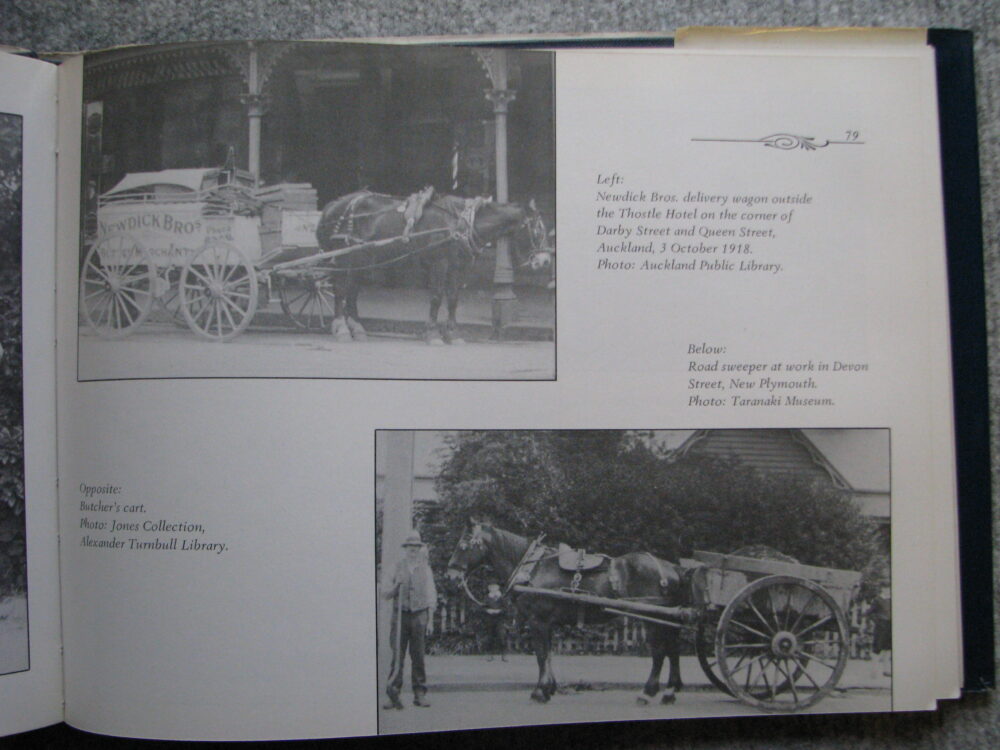 79
Left:
Newdick Bros. delivery wagon outside
the Thostle Hotel on the corner of
Darby Street and Queen Street,
Auckland, 3 October 1918.
Photo: Auckland Public Library.
Below:
Road sweeper at work in Devon
Street, New Plymouth.
Photo: Taranaki Museum.
Opposite:
Butcher's cart.
Photo: Jones Collection,
Alexander Turnbull Library.
NEWDICK BROS
MERCHANTS